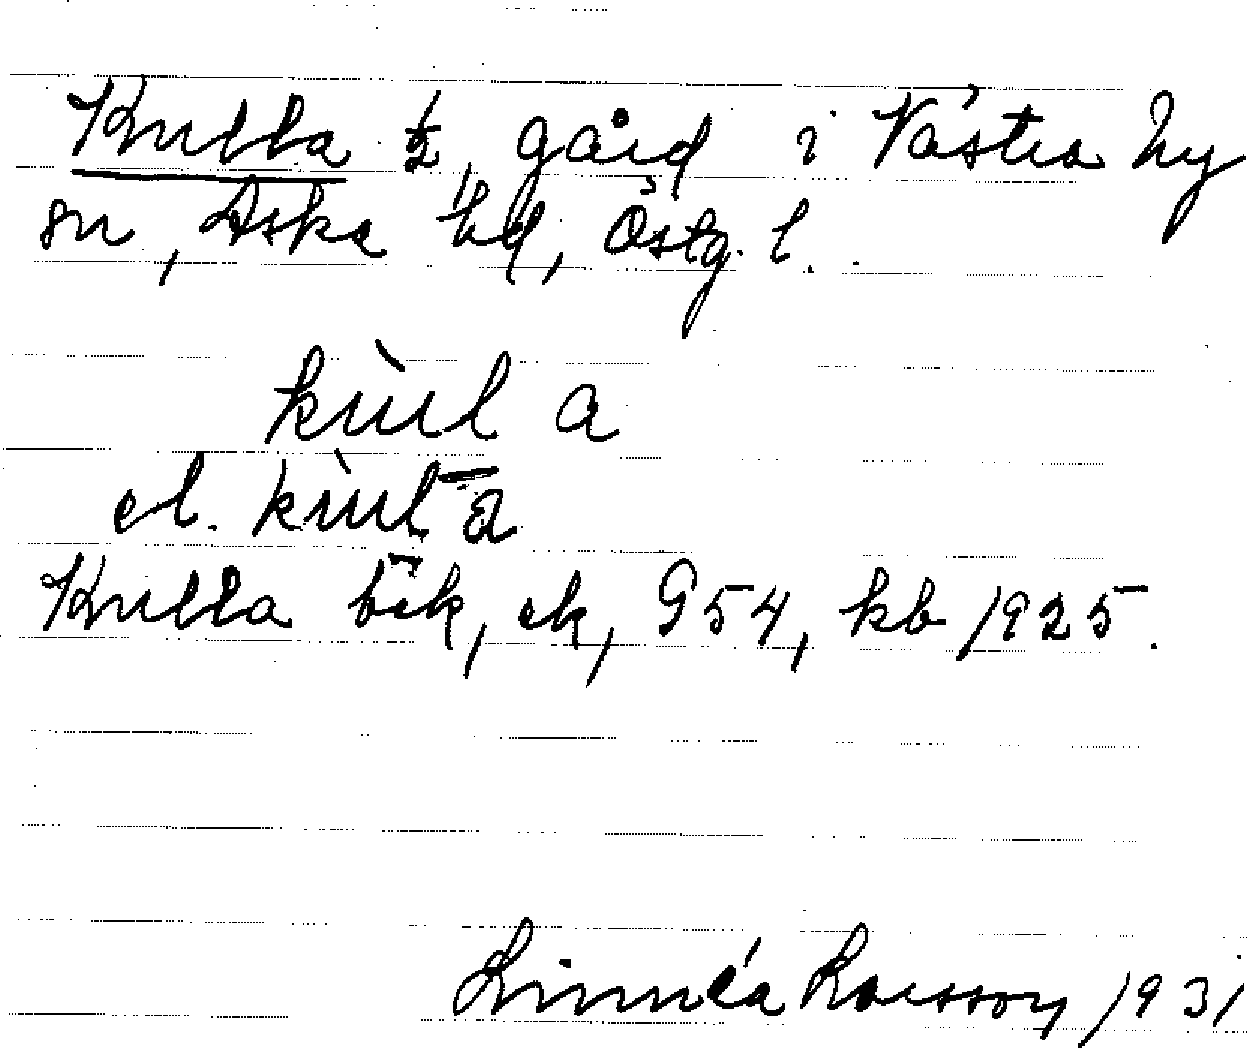 Kulla ½ gård i Västra Ny
sn, Aska hd, Östg. l.
kùl a
el. kùl a
Kulla bėk, ek, G54, kb 1925.
Linnéa Larsson 1931